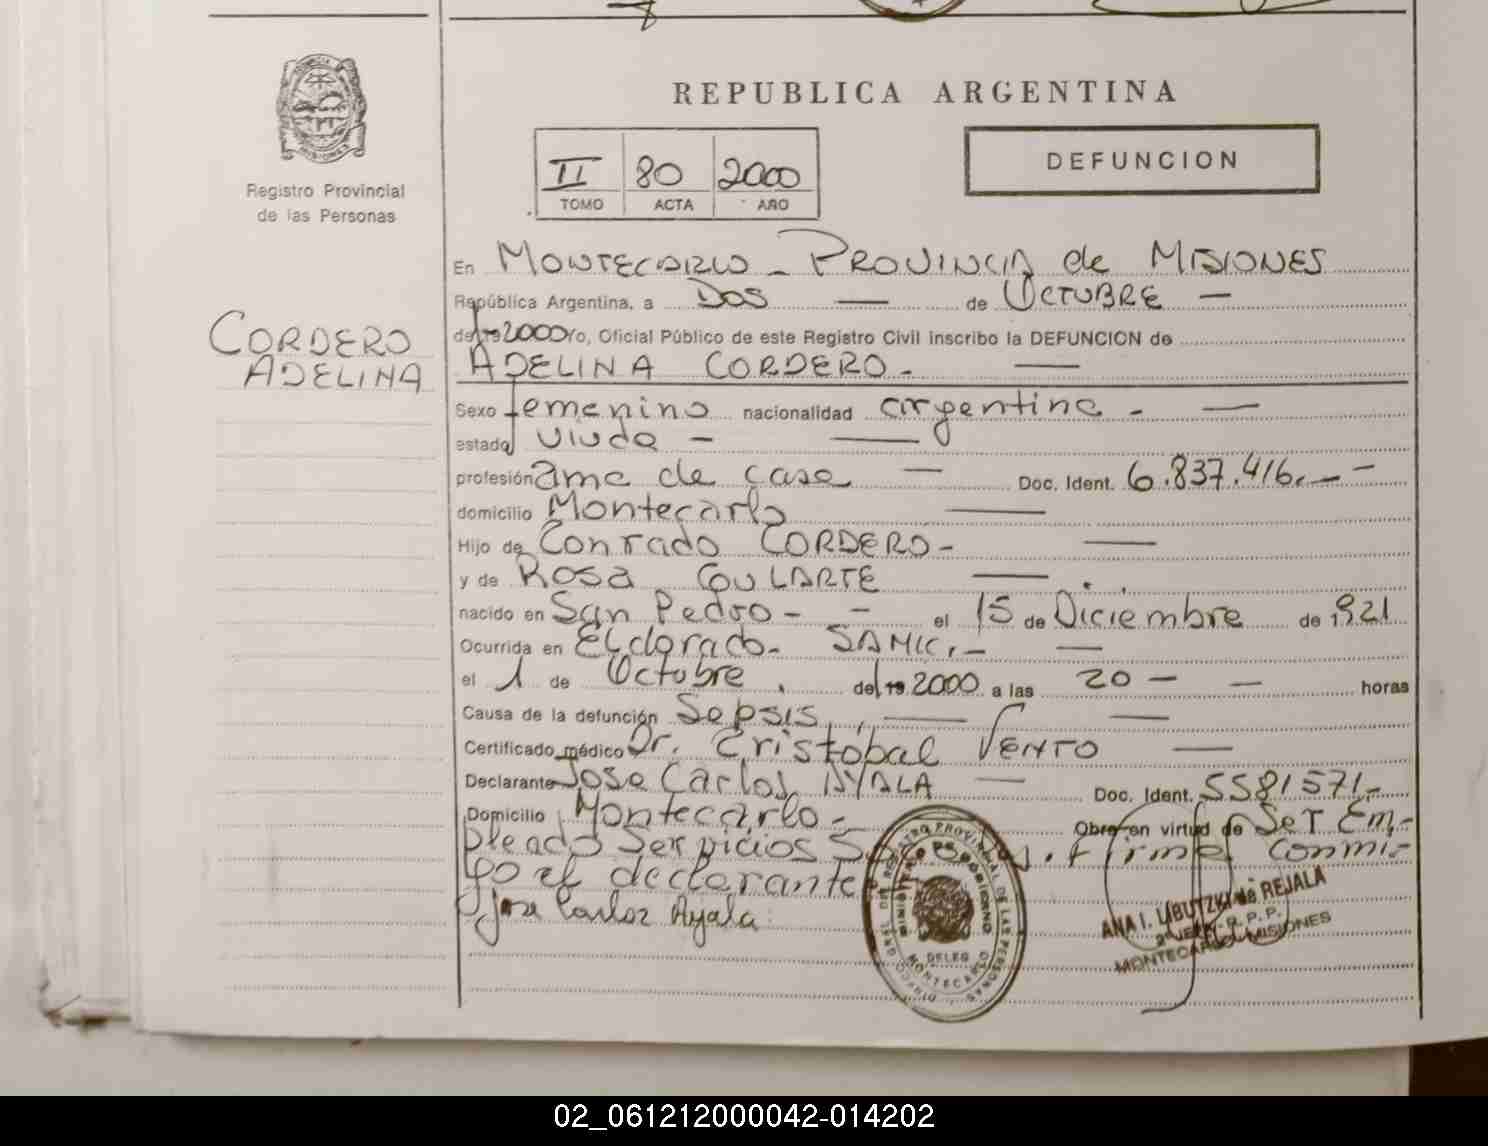 REPUBLICA ARGENTINA
DEFUNCION
II 80 2000
TOMO ACTA AÑO
MISIONES
Registro Provincial
de las Personas
CORDERO
ADELINA
En MONTECARLO - PROVINCIA de MISIONES
República Argentina, a DOS — de OCTUBRE —
del 2000, Oficial Público de este Registro Civil inscribo la DEFUNCION de
ADELINA CORDERO. —
Sexo femenino nacionalidad argentina - —
estado viuda - —
profesión ama de casa — Doc. Ident. 6.837.416.- -
domicilio Montecarlo —
Hijo de Conrado CORDERO- —
y de ROSA GOULARTE —
nacido en San Pedro - - el 15 de Diciembre de 1921
Ocurrida en Eldorado- SAMIC.- —
el 1 de Octubre del 19 2000 a las 20 - — horas
Causa de la defunción Sepsis, — —
Certificado médico Dr. Cristobal VENTO —
Declarante Jose Carlos AYALA — Doc. Ident. 5581571-
Domicilio Montecarlo - Obra en virtud de Ser Em-
pleado Servicios . firma conmi-
go el declarante
Jose Carlos Ayala
REGISTRO PROVINCIAL DE LAS PERSONAS
MINISTERIO DE GOBIERNO
DELEG.
MONTECARLO
ANA I. LIBUTZKI de REJALA
R. P. P.
MONTECARLO-MISIONES
02_061212000042-014202